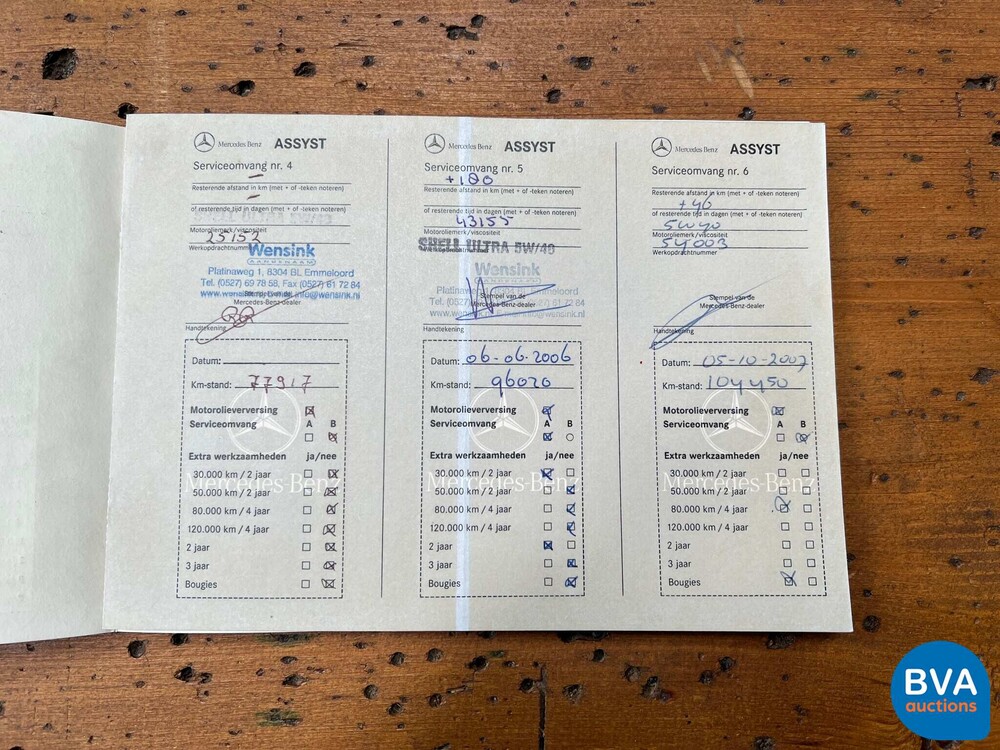 Mercedes Benz ASSYST
Serviceomvang nr. 4
-
Resterende afstand in km (met + of -teken noteren)
-
of resterende tijd in dagen (met + of -teken noteren)
Motoroliemerk/viscositeit
25152
Werkopdrachtnummer
Wensink
Platinaweg 1, 8304 BL Emmeloord
Tel. (0527) 69 78 58, Fax (0527) 61 72 84
Stempel van de
Mercedes-Benz-dealer
Handtekening
Datum:
Km-stand: 77917
Motorolieverversing
Serviceomvang A B
Extra werkzaamheden ja/nee
30.000 km / 2 jaar
50.000 km / 2 jaar
80.000 km / 4 jaar
120.000 km / 4 jaar
2 jaar
3 jaar
Bougies
Mercedes-Benz
Mercedes Benz ASSYST
Serviceomvang nr. 5
+180
Resterende afstand in km (met + of -teken noteren)
of resterende tijd in dagen (met + of -teken noteren)
43155
Motoroliemerk/viscositeit
SHELL ULTRA 5W/40
Wensink
Stempel van de
Mercedes-Benz-dealer
Handtekening
Datum: 06-06-2006
Km-stand: 96020
Motorolieverversing
Serviceomvang A B
Extra werkzaamheden ja/nee
30.000 km / 2 jaar
50.000 km / 2 jaar
80.000 km / 4 jaar
120.000 km / 4 jaar
2 jaar
3 jaar
Bougies
Mercedes-Benz
Mercedes Benz ASSYST
Serviceomvang nr. 6
Resterende afstand in km (met + of -teken noteren)
+40
of resterende tijd in dagen (met + of -teken noteren)
5W40
Motoroliemerk/viscositeit
54003
Werkopdrachtnummer
Stempel van de
Mercedes-Benz-dealer
Handtekening
Datum: 05-10-2007
Km-stand: 104450
Motorolieverversing
Serviceomvang A B
Extra werkzaamheden ja/nee
30.000 km / 2 jaar
50.000 km / 2 jaar
80.000 km / 4 jaar
120.000 km / 4 jaar
2 jaar
3 jaar
Bougies
Mercedes-Benz
BVA
auctions